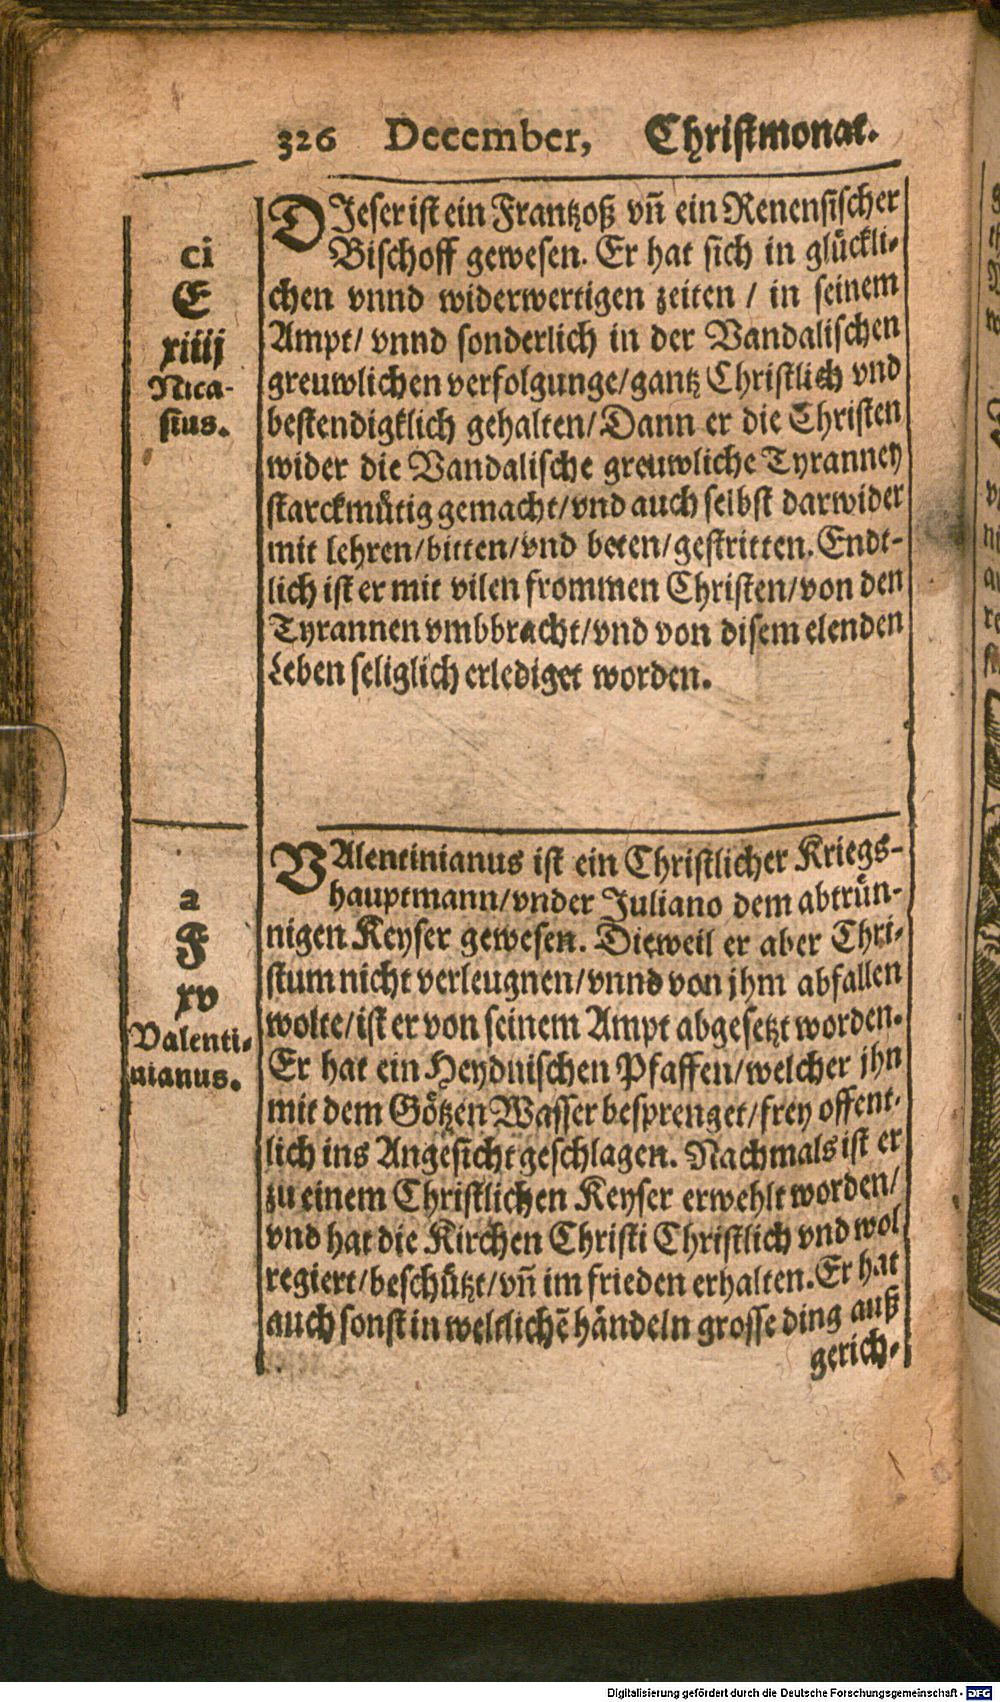 326 December, Christmonat.
ci
E
xiiij
Nica-
sius.
DJeser ist ein Frantzoß vñ ein Renensischer
Bischoff gewesen. Er hat sich in glückli-
chen vnnd widerwertigen zeiten / in seinem
Ampt/ vnnd sonderlich in der Vandalischen
greuwlichen verfolgunge/gantz Christlich vnd
bestendigklich gehalten/Dann er die Christen
wider die Vandalische greuwliche Tyranney
starckmütig gemacht/vnd auch selbst darwider
mit lehren/bitten/vnd beten/gestritten. Endt-
lich ist er mit vilen frommen Christen/von den
Tyrannen vmbbracht/vnd von disem elenden
Leben seliglich erlediget worden.
a
F
xv
Valenti-
nianus.
VAlentinianus ist ein Christlicher Kriegs-
hauptmann/vnder Juliano dem abtrün-
nigen Keyser gewesen. Dieweil er aber Chri-
stum nicht verleugnen/vnnd von jhm abfallen
wolte/ist er von seinem Ampt abgesetzt worden.
Er hat ein Heydnischen Pfaffen/welcher jhn
mit dem Götzen Wasser besprenget/frey offent-
lich ins Angesicht geschlagen. Nachmals ist er
zu einem Christlichen Keyser erwehlt worden/
vnd hat die Kirchen Christi Christlich vnd wol
regiert/beschützt/vñ im frieden erhalten. Er hat
auch sonst in weltlichẽ händeln grosse ding auß
gerich-
Digitalisierung gefördert durch die Deutsche Forschungsgemeinschaft - DFG